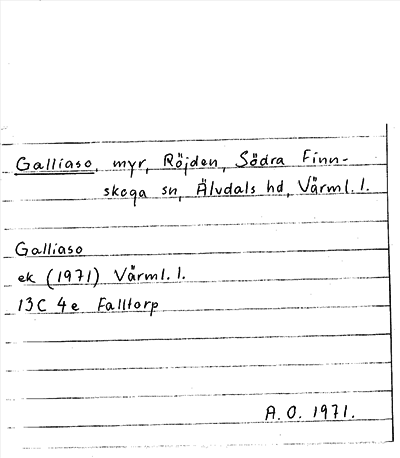 Galliaso, myr, Röjden, Södra Finn-
skoga sn, Älvdals hd, Värml. l.
Galliaso
ek (1971) Värml. l.
13C 4e Falltorp
A. O. 1971.